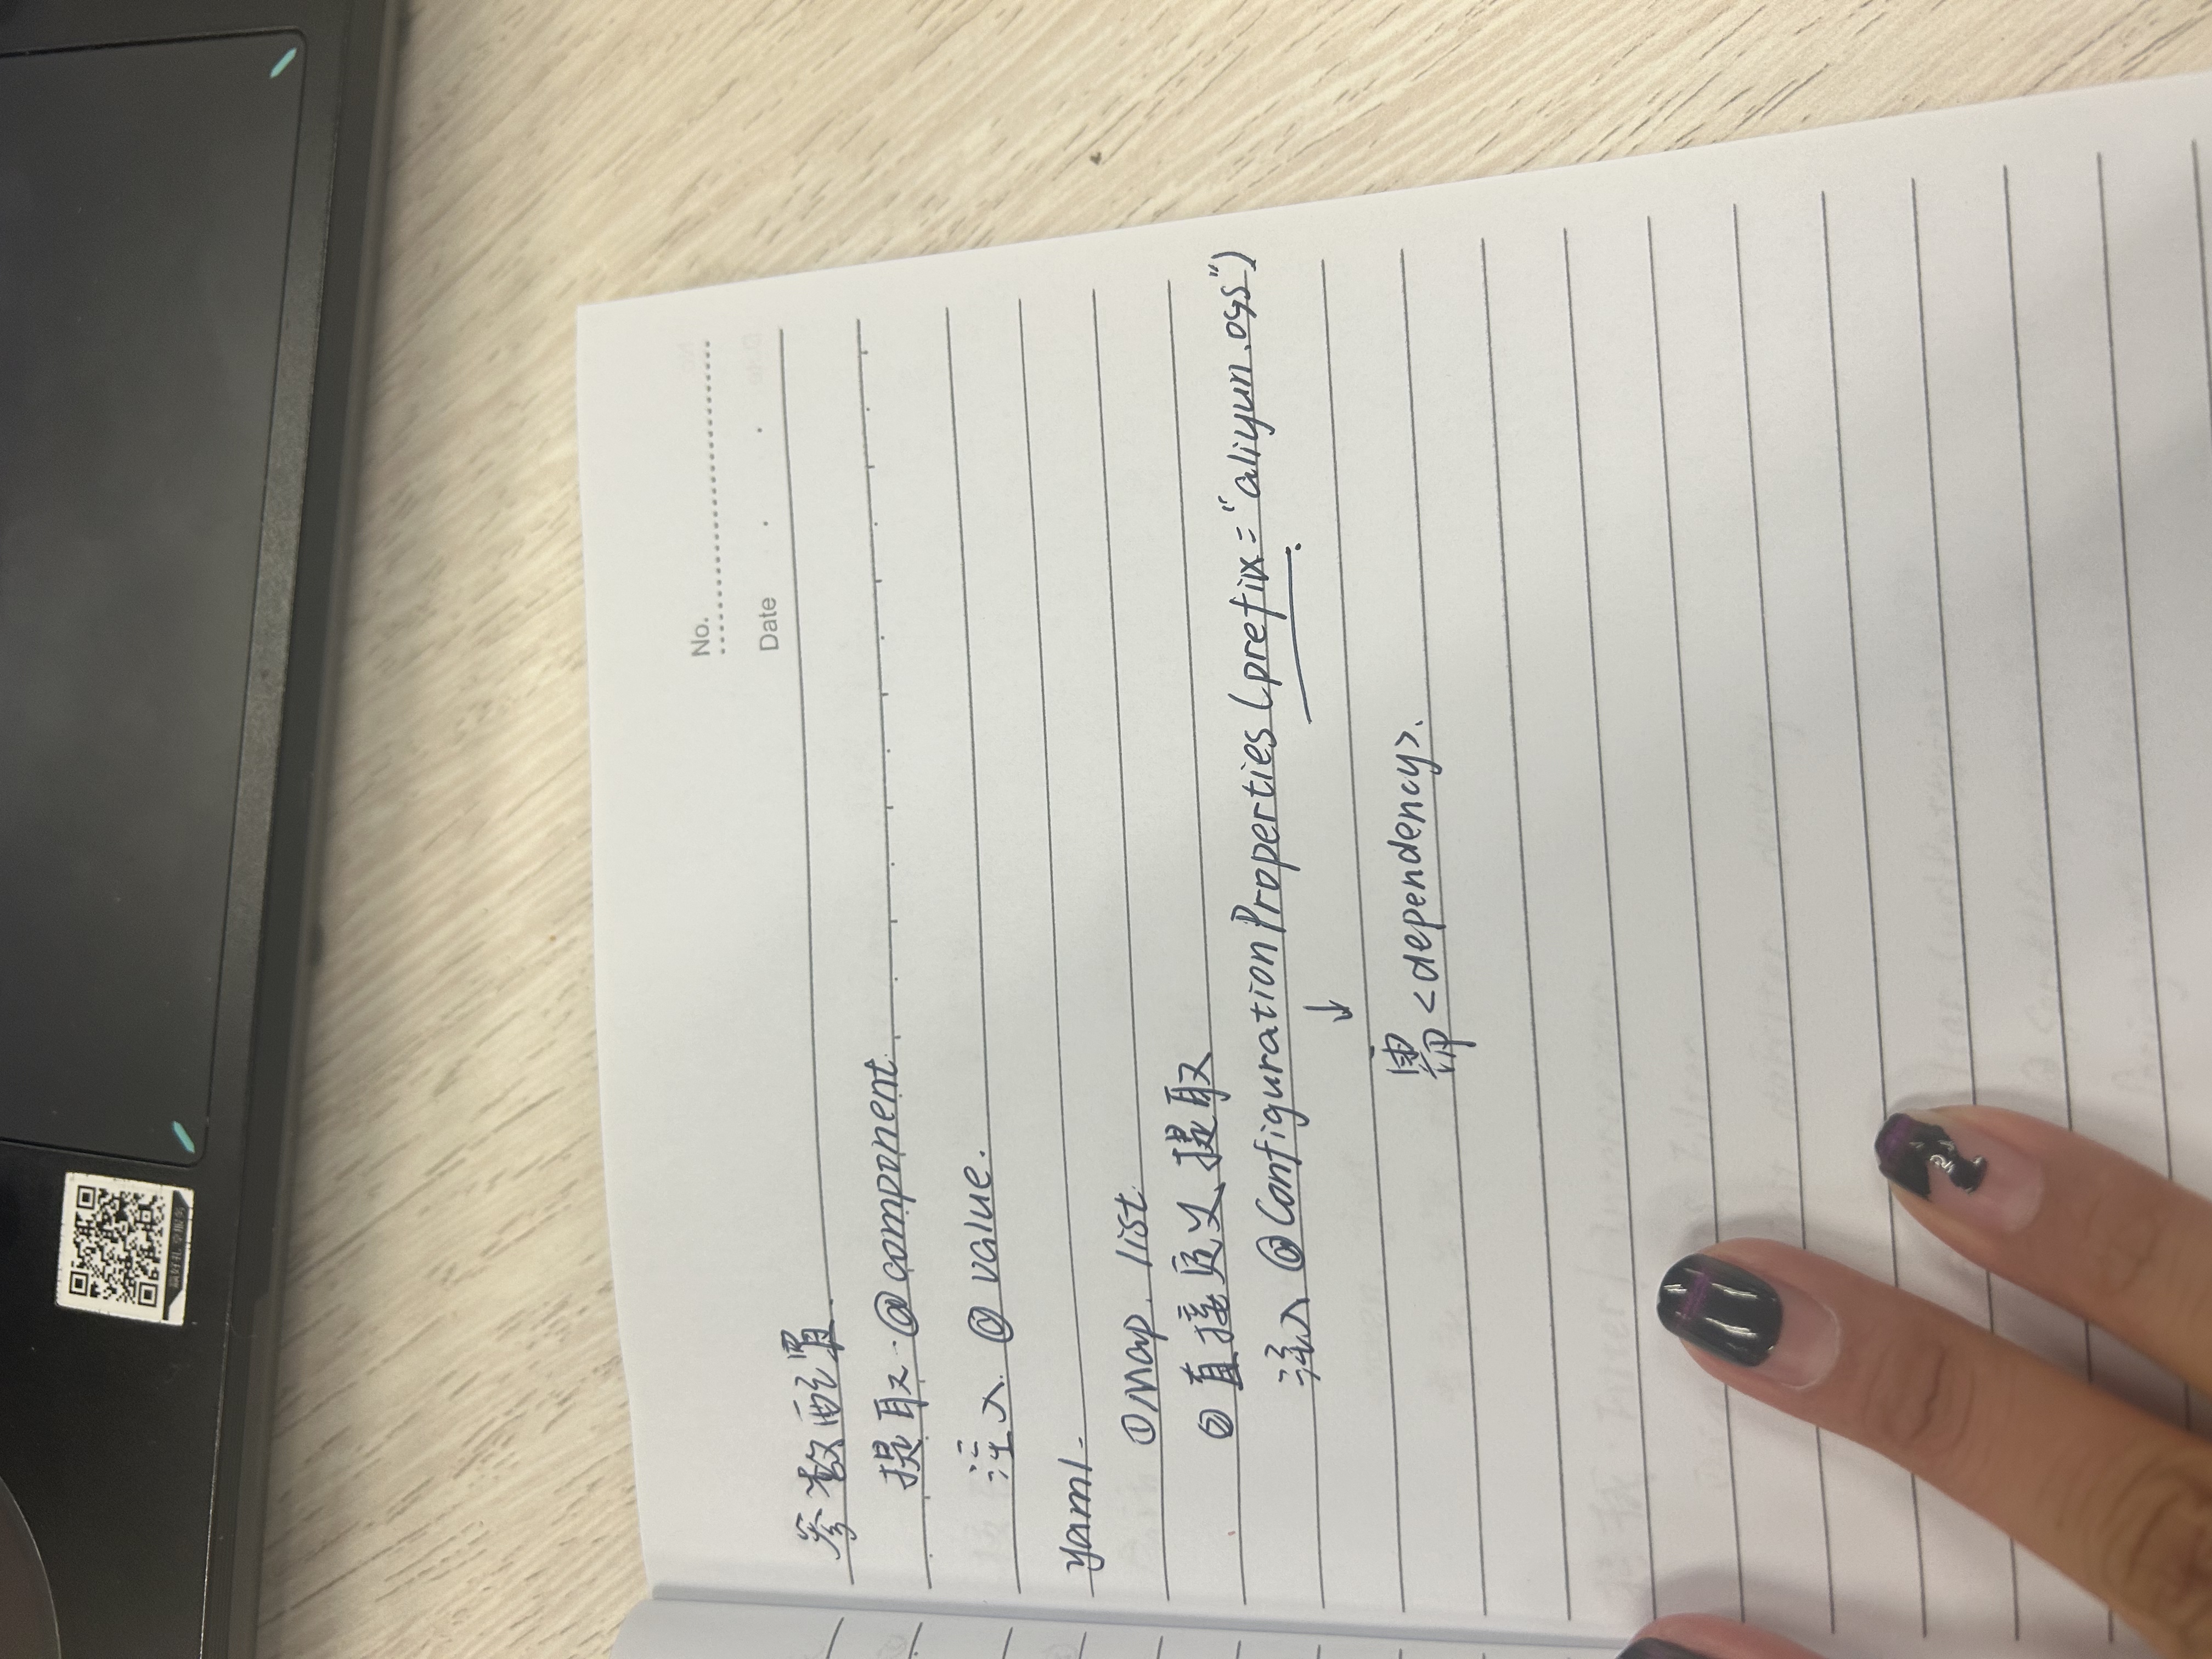 赢好礼 享服务
No.
Date
参数配置.
提取·@component.
注入. @value.
yaml.
①Map. list.
②直接定义提取
注入 @ConfigurationProperties (prefix = "aliyun.oss")
↓
需<dependency>.